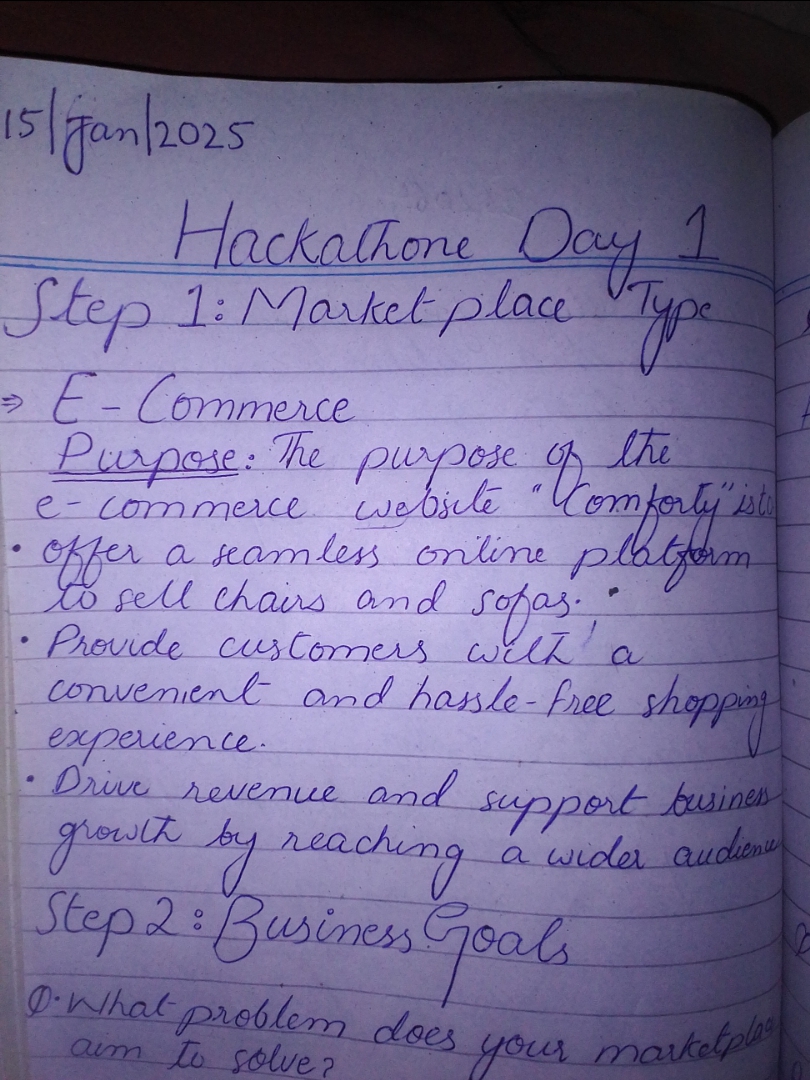 15/Jan/2025
Hackathone Day 1
Step 1: Market place Type
⇒ E-Commerce
Purpose: The purpose of the
e-commerce website "Comforty" is to
• offer a seamless online platform
to sell chairs and sofas.
• Provide customers with a
convenient and hassle-free shopping
experience.
• Drive revenue and support business
growth by reaching a wider audience
Step 2: Business Goals
Q. What problem does your marketplace
aim to solve?